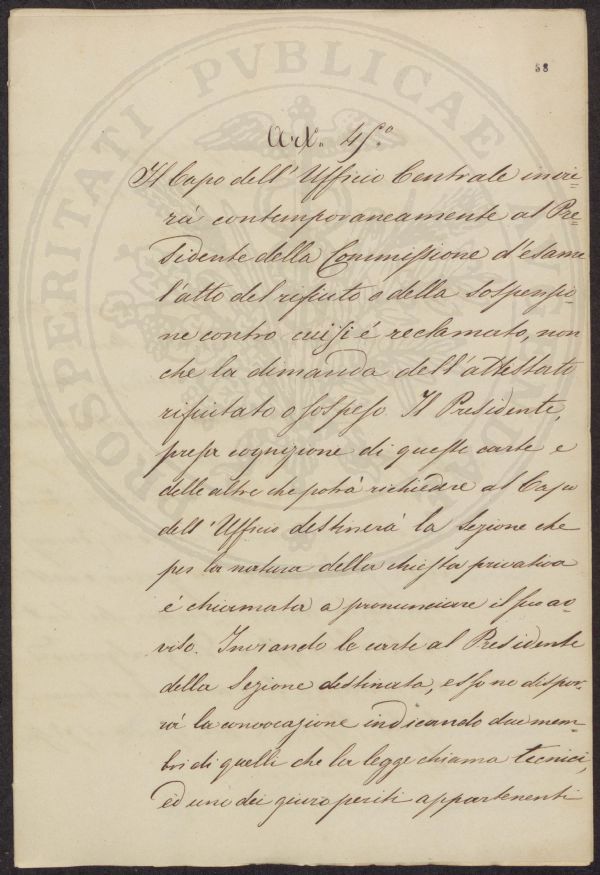 58
PROSPERITATI PVBLICAE AVGENDA
Art. 45.º
Il Capo dell' Ufficio Centrale invie-
rà contemporaneamente al Pre-
sidente della Commissione d'esame
l'atto del rifiuto o della sospensio-
ne contro cui si é reclamato, non
che la dimanda dell'attestato
rifiutato o sospeso. Il Presidente,
presa cognizione di queste carte e
delle altre che potrà richiedere al Capo
dell' Ufficio destinerà la Sezione che
per la natura della chiesta privativa
é chiamata a pronunciare il suo av-
viso. Inviando le carte al Presidente
della Sezione destinata, esso ne dispor-
rà la convocazione indicando due mem-
bri di quelli che la legge chiama tecnici,
ed uno dei giuro periti appartenenti